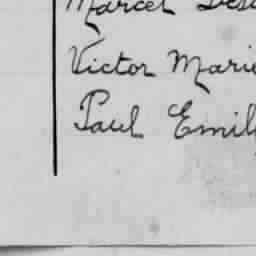 Marcel
Victor Marie
Paul Emil